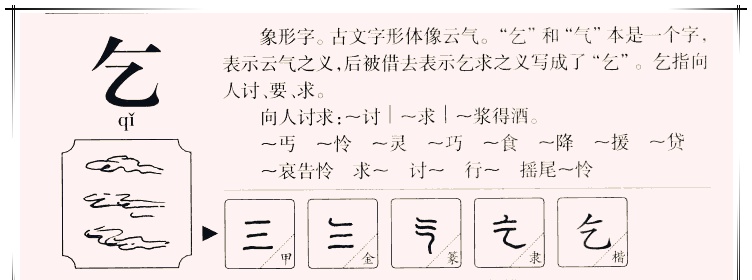 乞
qǐ
象形字。古文字形体像云气。“乞”和“气”本是一个字，
表示云气之义，后被借去表示乞求之义写成了“乞”。乞指向
人讨、要、求。
向人讨求：～讨｜～求｜～浆得酒。
～丐　～怜　～灵　～巧　～食　～降　～援　～贷
～哀告怜　求～　讨～　行～　摇尾～怜
三 三 气 乞 乞
甲 金 篆 隶 楷